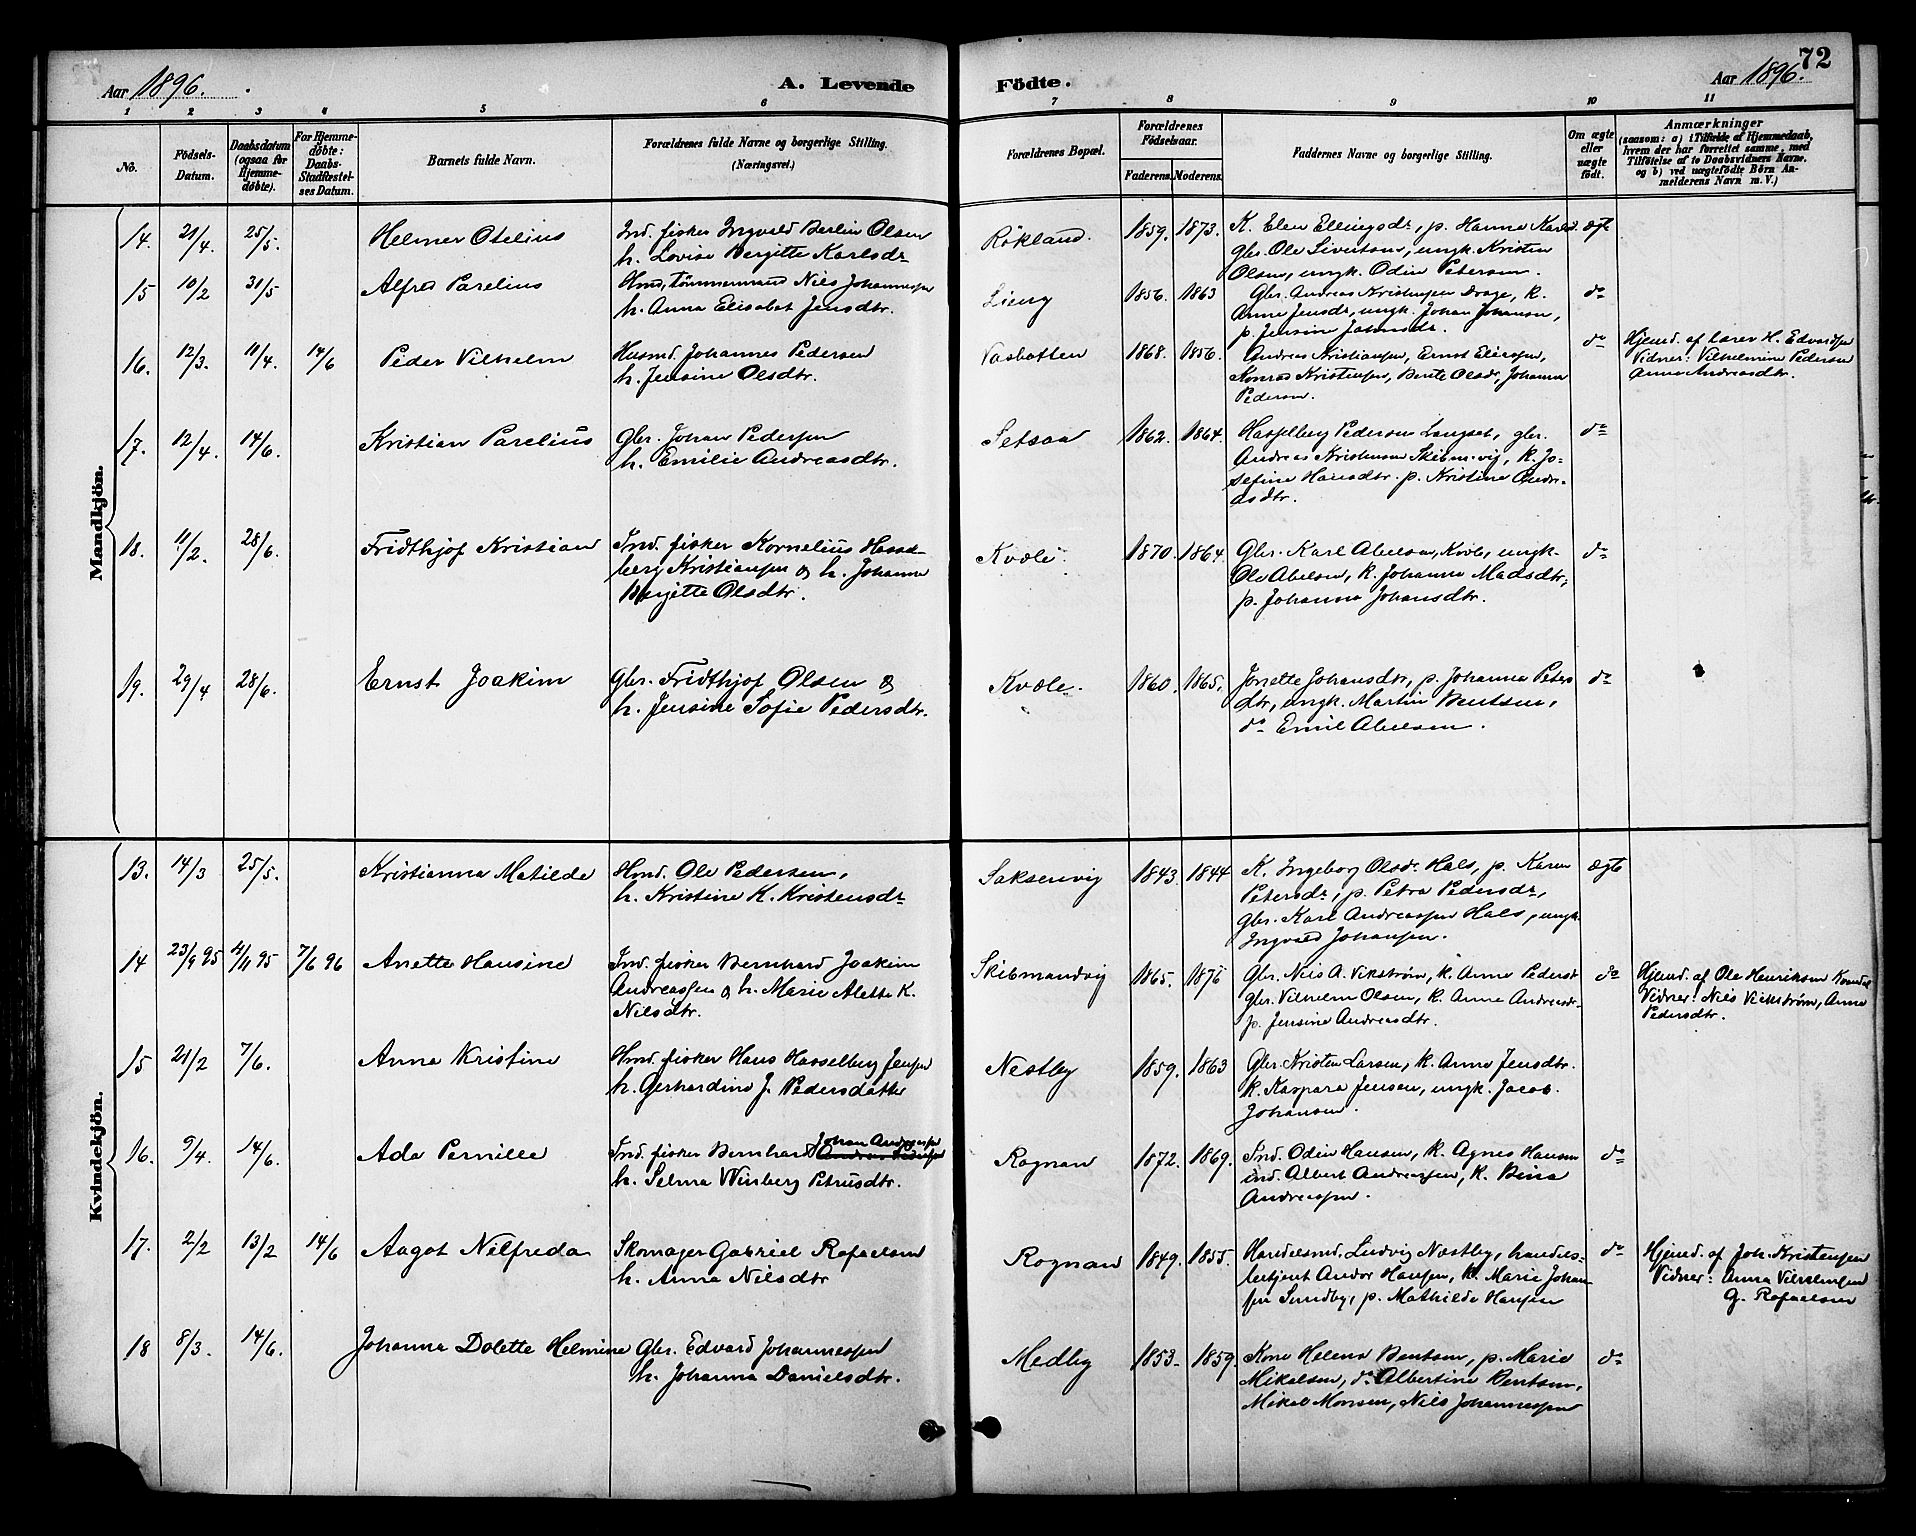 Aar 1896.
A. Levende
Födte.
Aar 1896.
72
1 2 3 4 5 6 7 8 9 10 11
No.
Födsels-Datum.
Daabsdatum (ogsaa for Hjemme-døbte).
For Hjemme-døbte: Daabs-Stadfæstel-ses Datum.
Barnets fulde Navn.
Forældrenes fulde Navne og borgerlige Stilling.
(Næringsvei.)
Forældrenes Bopæl.
Forældrenes Födselsaar.
Faderens. Moderens.
Faddernes Navne og borgerlige Stilling.
Om ægte eller uægte födt.
Anmærkninger
(saasom: a) i Tilfælde af Hjemmedaab,
hvem der har forrettet samme, med
Tilföielse af to Daabsvidners Navne.
og b) ved uægtefödte Börn An-
melderens Navn m. V.)
Mandkjön.
14. 21/4. 25/5. Helmer Otelius Ind. fisker Ingvald Berlin Olsen
h. Lovise Bergitte Karlsdr
Røkland. 1859. 1873. K. Elen Ellingsdr, p. Hanna Karlsd. ægt
gbr. Ole Sivertsen, ungk. Kristen
Olsen, ungk. Odin Petersen.
15 10/2 31/5 Alfred Parelius Hmd, tømmermand Nils Johannessen
h. Anna Elisabet Jensdtr.
Lieng 1856. 1863 Gbr. Andreas Kristensen Drage, k. do
Anne Jensdr, ungk. Johan Johansen,
p. Jensine Johnsdr.
16. 12/3. 11/4. 14/6 Peder Vilhelm Husmd. Johannes Pedersen
h. Jensine Olsdtr.
Vasbotten 1868. 1856. Andreas Kristiansen, Ernst Eliesen, do
Konrad Kristensen, Bente Olsdr, Johanna
Pedersen.
Hjemd. af lærer H. Edvardsen
Vidner: Vilhelmine Pedersen
Anna Andreasdtr.
17. 12/4. 14/6. Kristian Parelius Gbr. Johan Pedersen
h. Emilie Andreasdtr.
Setsaa 1862. 1864. Hasselberg Pedersen Langset, gbr. do
Andreas Kristensen Skibmvig, k. Jo-
sefine Hansdtr. p. Kristine Andre-
asdtr.
18. 11/2. 28/6. Fridthjof Kristian Ind. fisker Kornelius Hassel-
berg Kristiansen & h. Johanna
Bergitte Olsdtr.
Kvæle. 1870. 1864. Gbr. Karl Abelsen, Kvæle, ungk. do
Ole Abelsen, k. Johanna Madsdtr,
p. Johanna Johansdtr.
19. 29/4 28/6. Ernst Joakim Gbr. Fridthjof Olsen &
h. Jensine Sofie Pedersdtr.
Kvæle. 1860. 1865. Jonette Johansdtr, p. Johanna Peters- do
dtr, ungk. Martin Bentsen,
do Emil Abelsen.
Kvindekjön.
13. 14/3 25/5. Kristianna Matilde Hmd. Ole Pedersen,
h. Kristine K. Kristensdr
Saksenvig 1843. 1844 K. Ingeborg Olsdr Hals, p. Karen ægte
Petersdr, p. Petra Pedersdr,
gbr. Karl Andreassen Hals, ungk.
Ingvald Johansen.
14 23/9 95 4/11 95 7/6 96 Anette Hansine Ind. fisker Bernhard Joakim
Andreassen & h. Marie Alette K.
Nilsdtr.
Skibmandvig 1865. 1876 Gbr. Nils A. Vikstrøm, k. Anne Pedersdr do
gbr. Vilhelm Olsen, k. Anne Andreasdr
p. Jensine Andreasdtr.
Hjemd. af Ole Henriksen
Vidner: Nils Vickstrøm, Anna
Pedersdtr.
15 21/2 7/6. Anna Kristine Hmd. fisker Hans Hasselberg Jensen
h. Gerhardine J. Pedersdatter
Nestby 1859. 1863 Gbr. Kristen Larsen, k. Anne Jensdtr.
k. Kaspara Jensen, ungk. Jacob
Johansen.
16. 9/4. 14/6. Ada Pernille Ind. fisker Bernhard Johan Andreassen
h. Selma Winberg Petrusdtr.
Rognan 1872. 1869. Ind. Odin Hansen, k. Agnes Hansen do
ind. Albert Andreassen, k. Bina
Andreassen.
17. 2/2 13/2 14/6 Aagot Nilfreda Skomager Gabriel Rafaelsen
h. Anna Nilsdtr
Rognan 1849. 1855. Handelsmd. Ludvig Næstby, handels- do
betjent Andor Hansen, k. Marie Johan-
sen Sundby, p. Mathilde Hansen
Hjemd. af Joh. Kristensen
Vidner: Anna Vilhelmsen
G. Rafaelsen
18 8/3. 14/6. Johanna Dolette Helmine Gbr. Edvard Johannessen
h. Johanna Danielsdtr.
Medby 1853. 1859. Kone Helena Bentsen, p. Marie do
Mikalsen, do Albertine Bentsen,
Mikal Monsen, Nils Johannessen